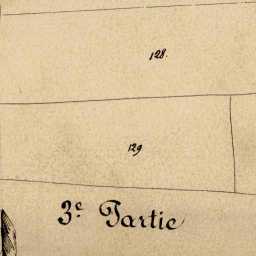 128.
129
3e Partie